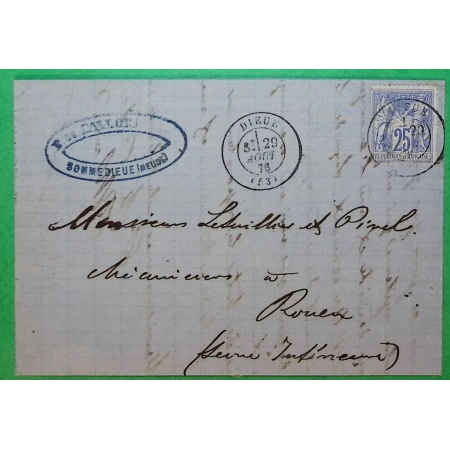 SOMMEDIEUE (MEUSE)
DIEUE
29
AOUT
76
(53)
POSTE
25
REPUBLIQUE FRANCAISE
29
Messieurs Letuillier et Pinel
Mécaniciens à
Rouen
(Seine Inférieure)